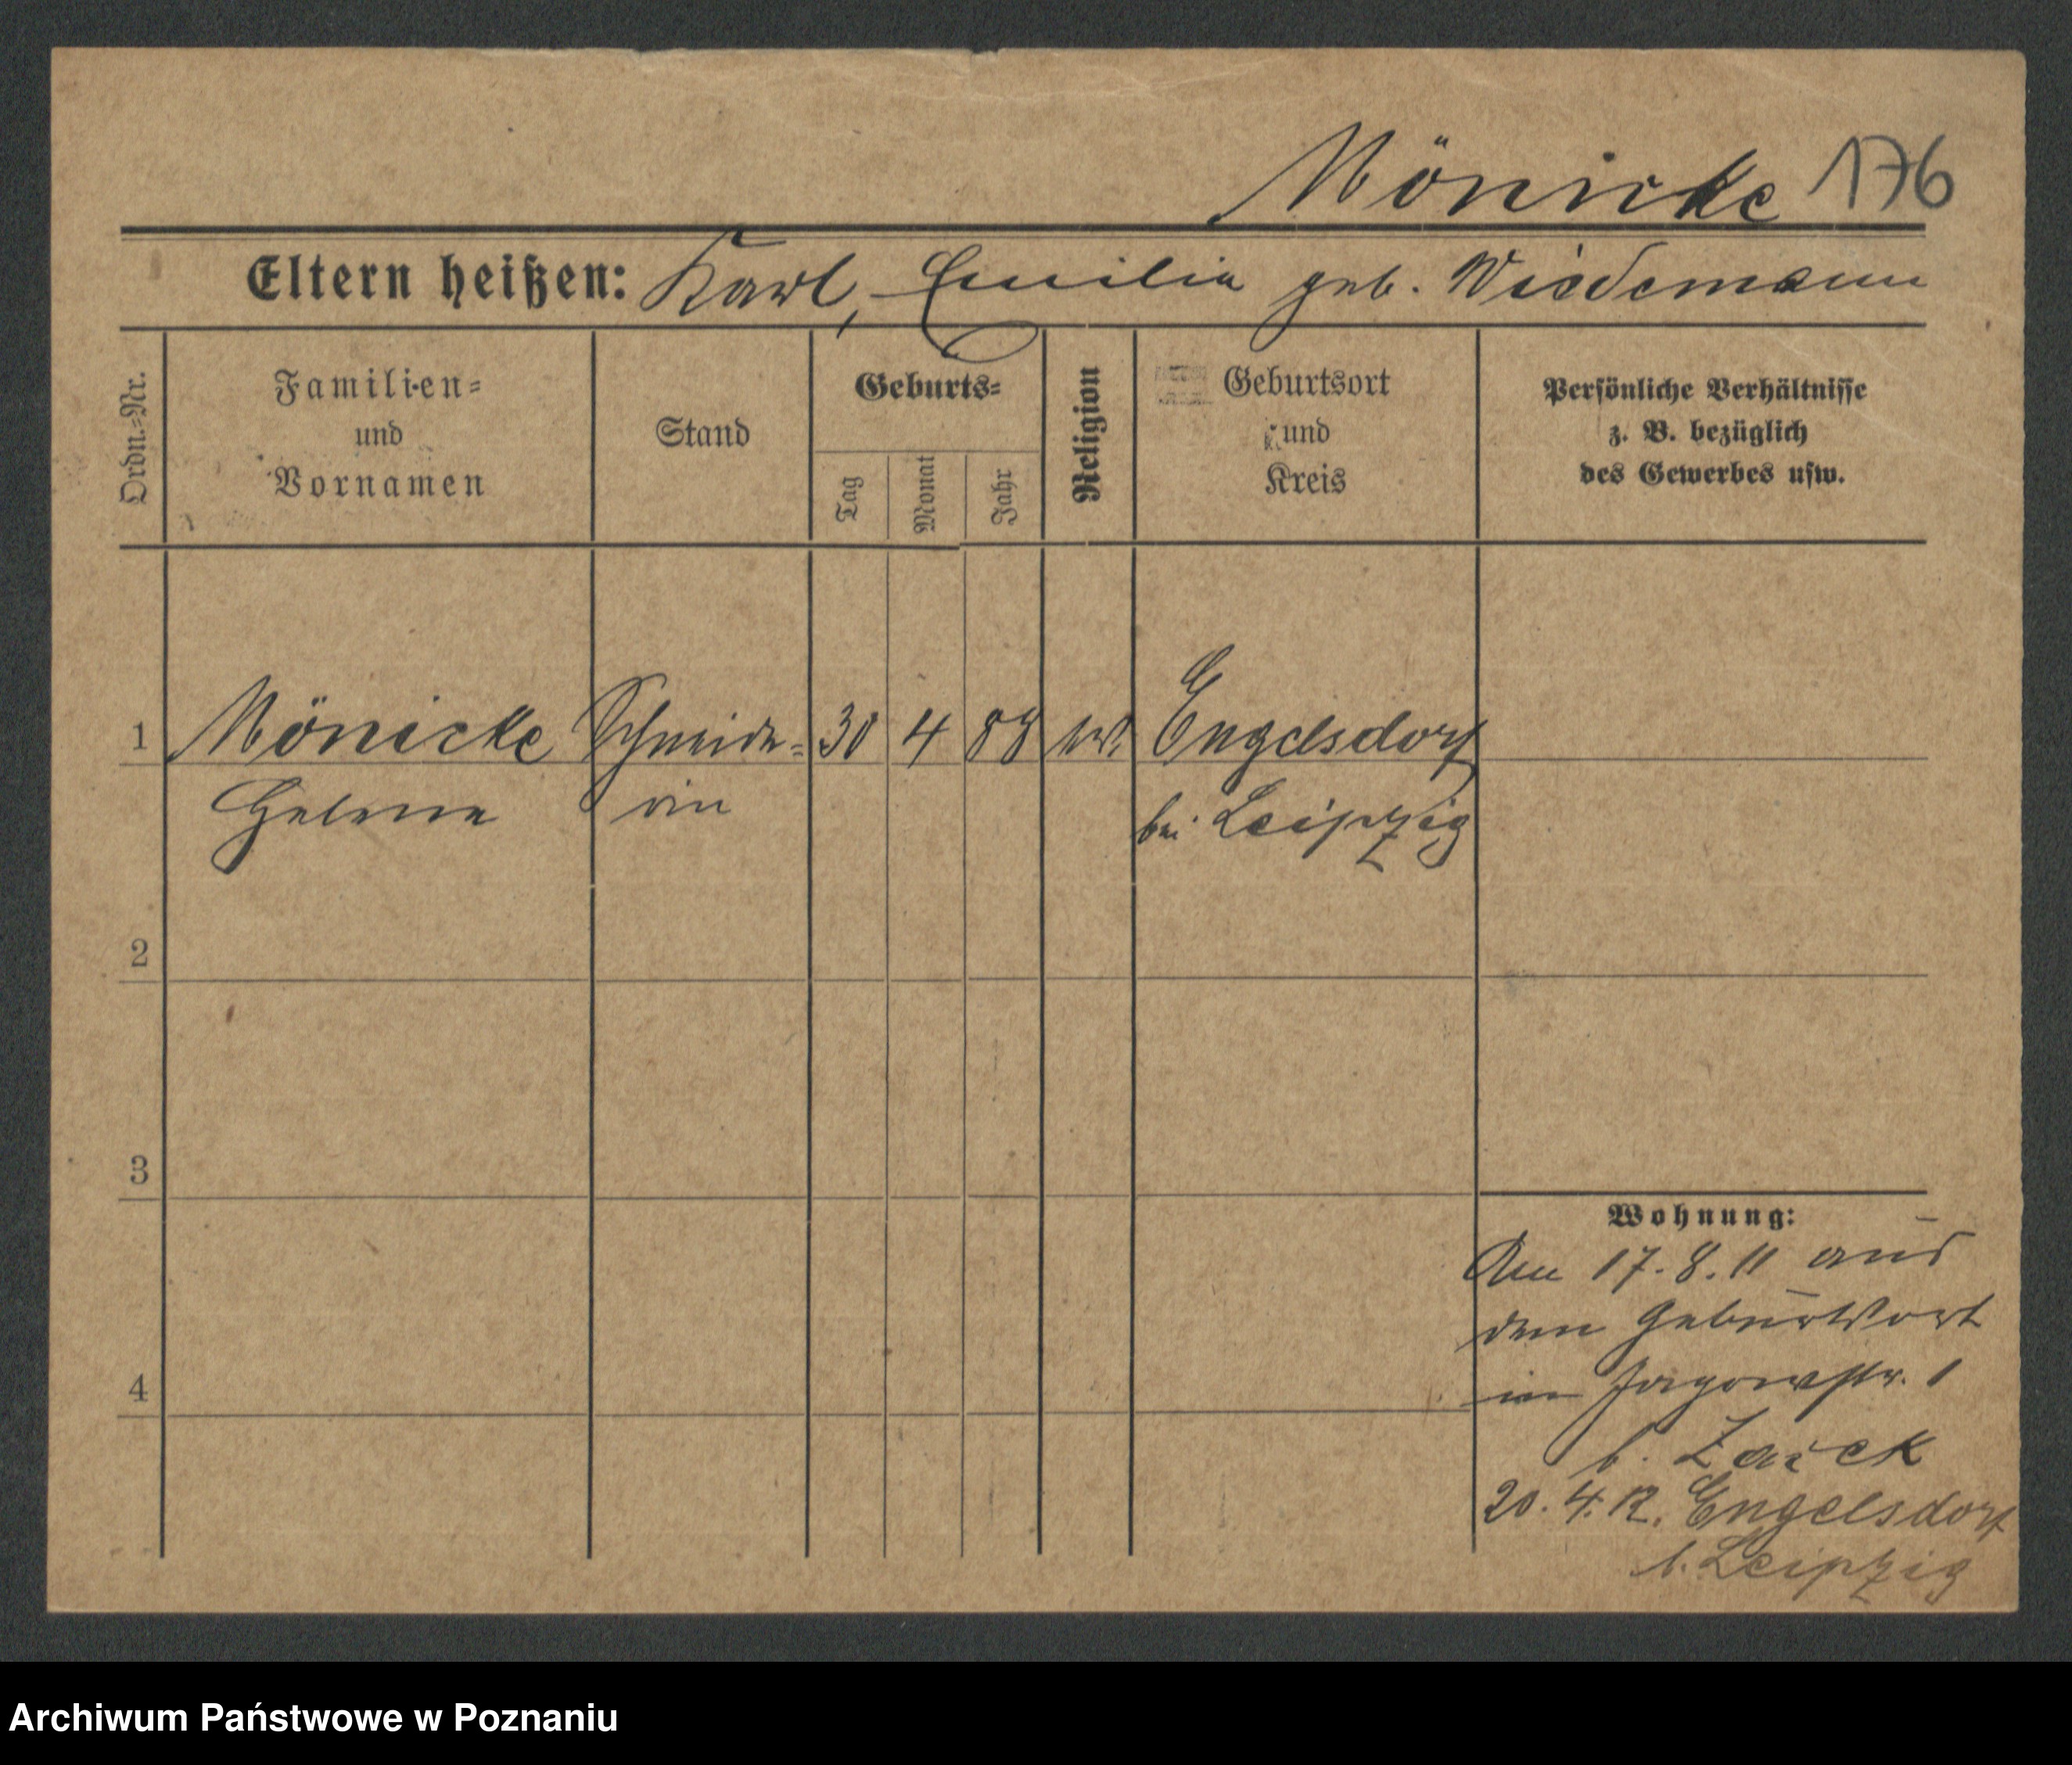 Mönicke 176
Eltern heißen: Karl, Emilie geb. Wiedemann
Ordn.-Nr.
Familien-
und
Vornamen
Stand
Geburts-
Tag
Monat
Jahr
Religion
Geburtsort
und
Kreis
Persönliche Verhältnisse
z. B. bezüglich
des Gewerbes usw.
1 Mönicke Schneide- 30 4 88 Engelsdorf
Helene rin bei Leipzig
2
3
4
Wohnung:
Am 17.8.11 aus
dem Geburtsort
in Jagowstr. 1
b. Zaick
20.4.12. Engelsdorf
b. Leipzig
Archiwum Państwowe w Poznaniu